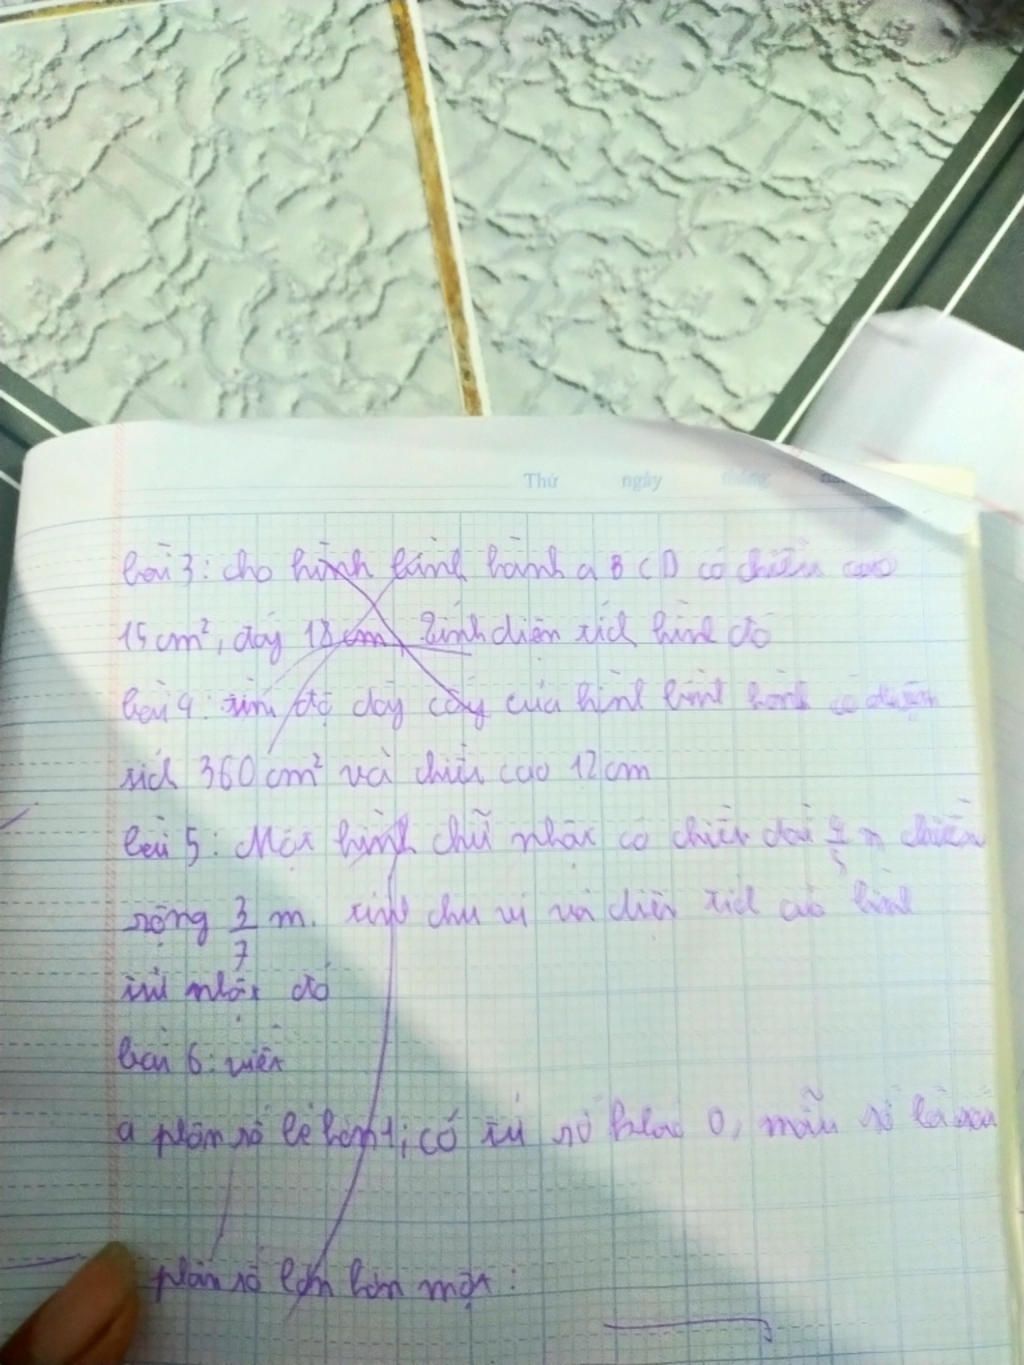 Thứ ngày tháng
bài 3: cho hình bình hành a B C D có chiều cao
15 cm², đáy 18 cm, Tính diện tích hình đó
bài 4: tìm độ dày cấy của hình bình hành có diện
tích 360 cm² và chiều cao 12 cm
bài 5: Một hình chữ nhật có chiều dài 4/5 m chiều
rộng 3/7 m. tính chu vi và diện tích của hình
nhật đó
bài 6: viết
a phân số bé hơn 1; có tử số khác 0, mẫu số là
phân số lớn hơn một: